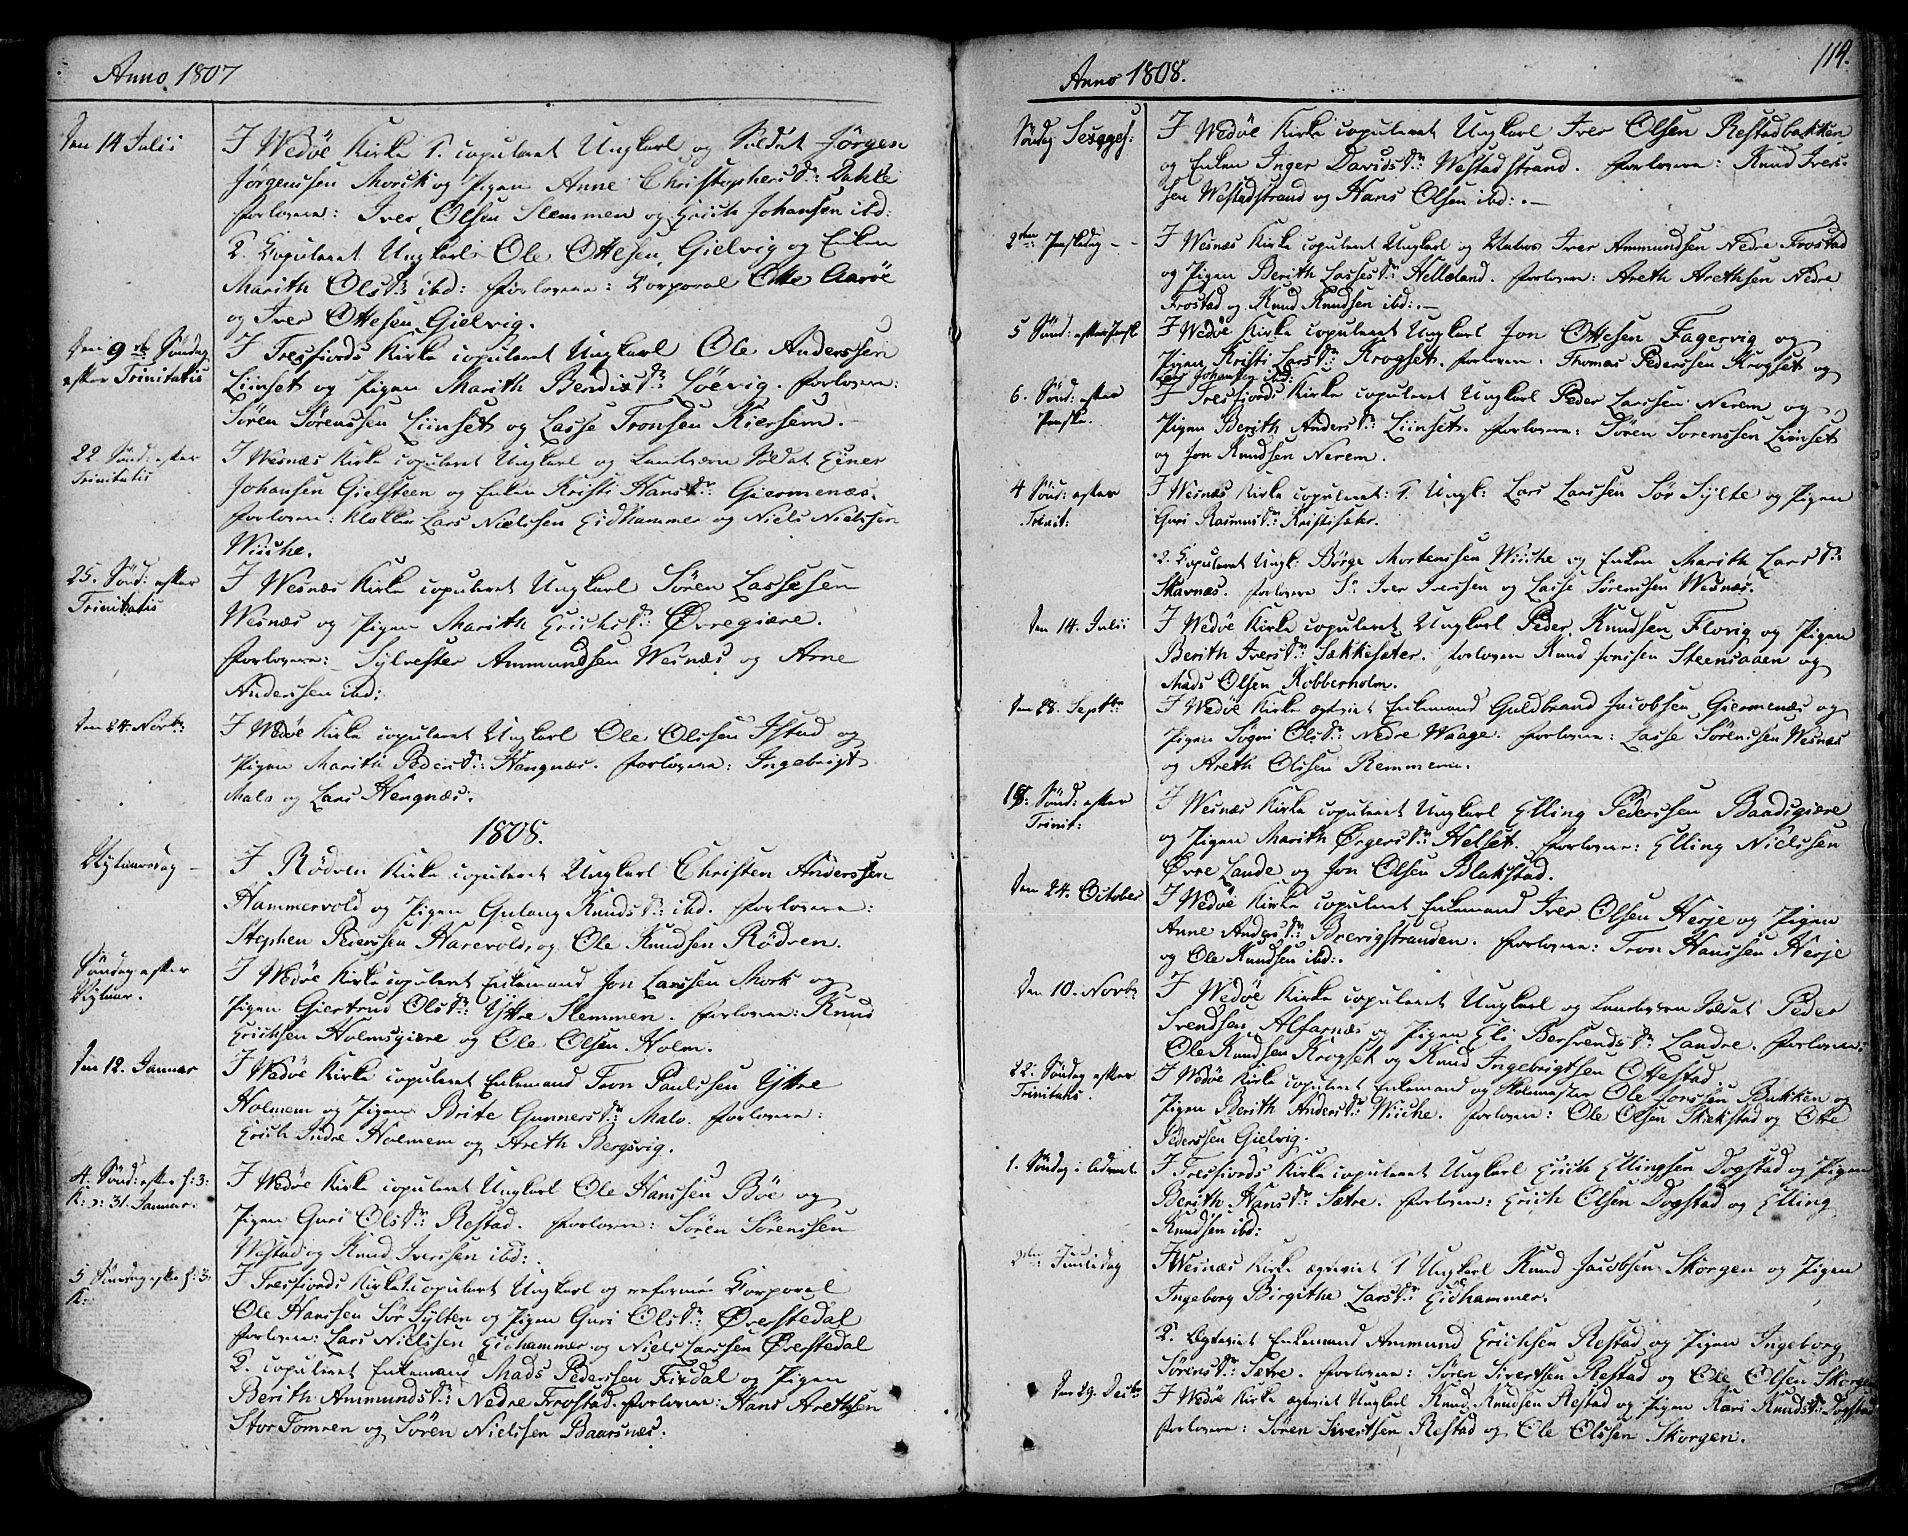 Anno 1807
Den 14 Julii
I Wedöe Kirke 1. copuleret Ungkarl og Soldat Jørgen
Jørgenssen Morsk og Pigen Anne Christophersdr: Dahle
Forlovere: Iver Olsen Slemmen og Erich Johansen ibd:
2. Copuleret Ungkarl Ole Ottesen Gielvig og Enken
Marith Olsdr: ibd: Forlovere: Corporal Otte Aarøe
og Iver Ottesen Gielvig.
Den 9de Søndag
efter Trinitatis
I Tresfiords Kirke copuleret Ungkarl Ole Anderssen
Liinset og Pigen Marith Bendixdr: Løevig. Forlovere:
Søren Sørenssen Liinset og Lasse Tronsen Kiersem.
22 Sönd: efter
Trinitatis
I Wesnæs Kirke copuleret Ungkarl og Landværn Soldat Einer
Johansen Gielsteen og Enken Kristi Hansdr: Giermenæs.
Forlovere: Klokker Lars Nielssen Eidhammer og Niels Nielssen
Wiiche.
25. Sönd: efter
Trinitatis
I Wesnæs Kirke copuleret Ungkarl Søren Lassesen
Wesnæs og Pigen Marith Erichsdr: Øvregiære.
Forlovere: Sylvester Ammundsen Wesnæs og Arne
Anderssen ibd:
Den 24. Novbr:
I Wedöe Kirke copuleret Ungkarl Ole Olssen Istad og
Pigen Marith Pedersdr: Hengnæs. Forlovere: Ingebrigt
Malo og Lars Hengnæs:
1808.
Nytaarsdag —
I Rödven Kirke copuleret Ungkarl Christen Anderssen
Hammervold og Pigen Gulaug Knudsdr: ibd. Forlovere:
Stephen Pederssen Harevold, og Ole Knudsen Rödven.
Søndag efter
Nytaar.
I Wedöe Kirke copuleret Enkemand Jon Larssen Mork og
Pigen Giertrud Olsdr: Yttre Slemmen. Forlovere: Knud
Erichsen Holmsgiære og Ole Olsen Holm.
Den 12. Januar
I Wedöe Kirke copuleret Enkemand Tron Paulssen Yttre
Holmem og Pigen Brite Gunnersdr: Malo. Forlovere:
Erich Indre Holmem og Areth Bergsvig.
4. Sönd: efter H: 3:
K: d: 31. Januar:
I Wedöe Kirke copuleret Ungkarl Ole Hanssen Böe og
Pigen Guri Olsdr: Restad. Forlovere: Søren Sörenssen
Westad og Knud Iverssen ibd:
5 Søndag efter H: 3:
K:
I Tresfiords Kirke 1. copuleret Ungkarl og reformé Corporal
Ole Hanssen Sör Sylten og Pigen Guri Olsdr: Øverstedal
Forlovere: Lars Nielssen Eidhammer og Niels Larssen Øverstedal
2. copuleret Enkemand Mads Pederssen Fixdal og Pigen
Berith Ammundsdr: Nedre Frostad. Forlovere: Hans Arethsen
Stor Tomren og Søren Nielssen Baarsnæs.
Anno 1808.
114.
Søndag Sexages:
I Wedöe Kirke copuleret Ungkarl Iver Olsen Restadbakken
og Enken Inger Davidsdr: Westadstrand. Forlovere: Knud Iver-
sen Westadstrand og Hans Olsen ibd:. —
2den Paaskedag - -
I Wesnæs Kirke copuleret Ungkarl og Matros Iver Ammundsen Nedre Frostad
og Pigen Berith Lassesdr: Helleland. Forlovere: Areth Arethsen Nedre
Frostad og Knud Knudsen ibd:. —
5 Sönd: efter Paask
I Wedöe Kirke copuleret Ungkarl Jon Ottesen Fagervig og
Pigen Kristi Larsdr: Krogset. Forlovere: Thomas Pederssen Krogset og
Lars Johansen ibd:
6. Sönd: efter
Paaske.
I Tresfiords Kirke copuleret Ungkarl Peder Larssen Nerem og
Pigen Berith Andersdr: Liinset. Forlovere: Søren Sørenssen Liinset
og Jon Knudsen Nerem.
4 Sönd: efter
Trinit:
I Wesnæs Kirke copuleret: 1. Ungk: Lars Larssen Sør Sylte og Pigen
Guri Rasmusdr: Kristisæter.
2. Copuleret Ungk: Børge Mortenssen Wiiche og Enken Marith Larsdr:
Skavnæs. Forlovere Sr. Iver Iverssen og Lasse Sørenssen Wesnæs.
Den 14. Julii
I Wedöe Kirke copuleret Ungkarl Peder Knudsen Flovig og Pigen
Berith Iversdr: Sækkesæter. Forlovere Knud Jonssen Steensaaen og
Mads Olsen Kobberholm.
Den 28. Septbr
I Wedöe Kirke ægteviet Enkemand Guldbrand Jacobsen Giermenæs og
Pigen Sigri Olsdr: Nedre Waage. Forlovere: Lasse Sørenssen Wesnæs
og Areth Olssen Remmem.
18. Sönd: efter
Trinit:
I Wesnæs Kirke copuleret Ungkarl Elling Pederssen Baardsgiære
og Pigen Marith Ørgersdr: Helset. Forlovere: Elling Nielssen
Øvre Lande og Jon Olsen Blakstad.
Den 24. October
I Wedöe Kirke copuleret Enkemand Iver Olsen Herje og Pigen
Anne Andersdr: Brevigstranden. Forlovere: Tron Hanssen Herje
og Ole Knudsen ibd:.
Den 10. Novbr
I Wedöe Kirke copuleret Ungkarl og Landværn Soldat Peder
Svendsen Alfarnæs og Pigen Eli Bersvendsdr: Landre. Forlovere:
Ole Knudsen Krogset og Knud Ingebrigtsen Ottestad.
22. Søndag efter
Trinitatis.
I Wedöe Kirke copuleret Enkemand og Skolemester Ole Jonssen Bakken og
Pigen Berith Andersdr: Wiiche. Forlovere: Ole Olsen Skiekstad og Otte
Pederssen Gielvig.
1. Søndag i Advent
I Tresfiords Kirke copuleret Ungkarl Erich Ellingsen Dogstad og Pigen
Berith Hansdr: Sætre. Forlovere: Erich Olsen Dogstad og Elling
Knudsen ibd:
2den Juuledag
I Wesnæs Kirke ægteviet 1 Ungkarl Knud Jacobsen Skorgen og Pigen
Ingeborg Birgithe Larsdr: Eidhammer.
2. Ægteviet Enkemand Ammund Erichsen Restad og Pigen Ingeborg
Sörensdr: Sætre. Forlovere: Søren Sivertsen Restad og Ole Olsen Skorgen
Den 29. Decbr
I Wedöe Kirke ægteviet Ungkarl Knud Knudsen Restad og Pigen Kari Knudsdr: Dogstad
Forlovere: Søren Sivertsen Restad og Ole Olssen Skorgen.